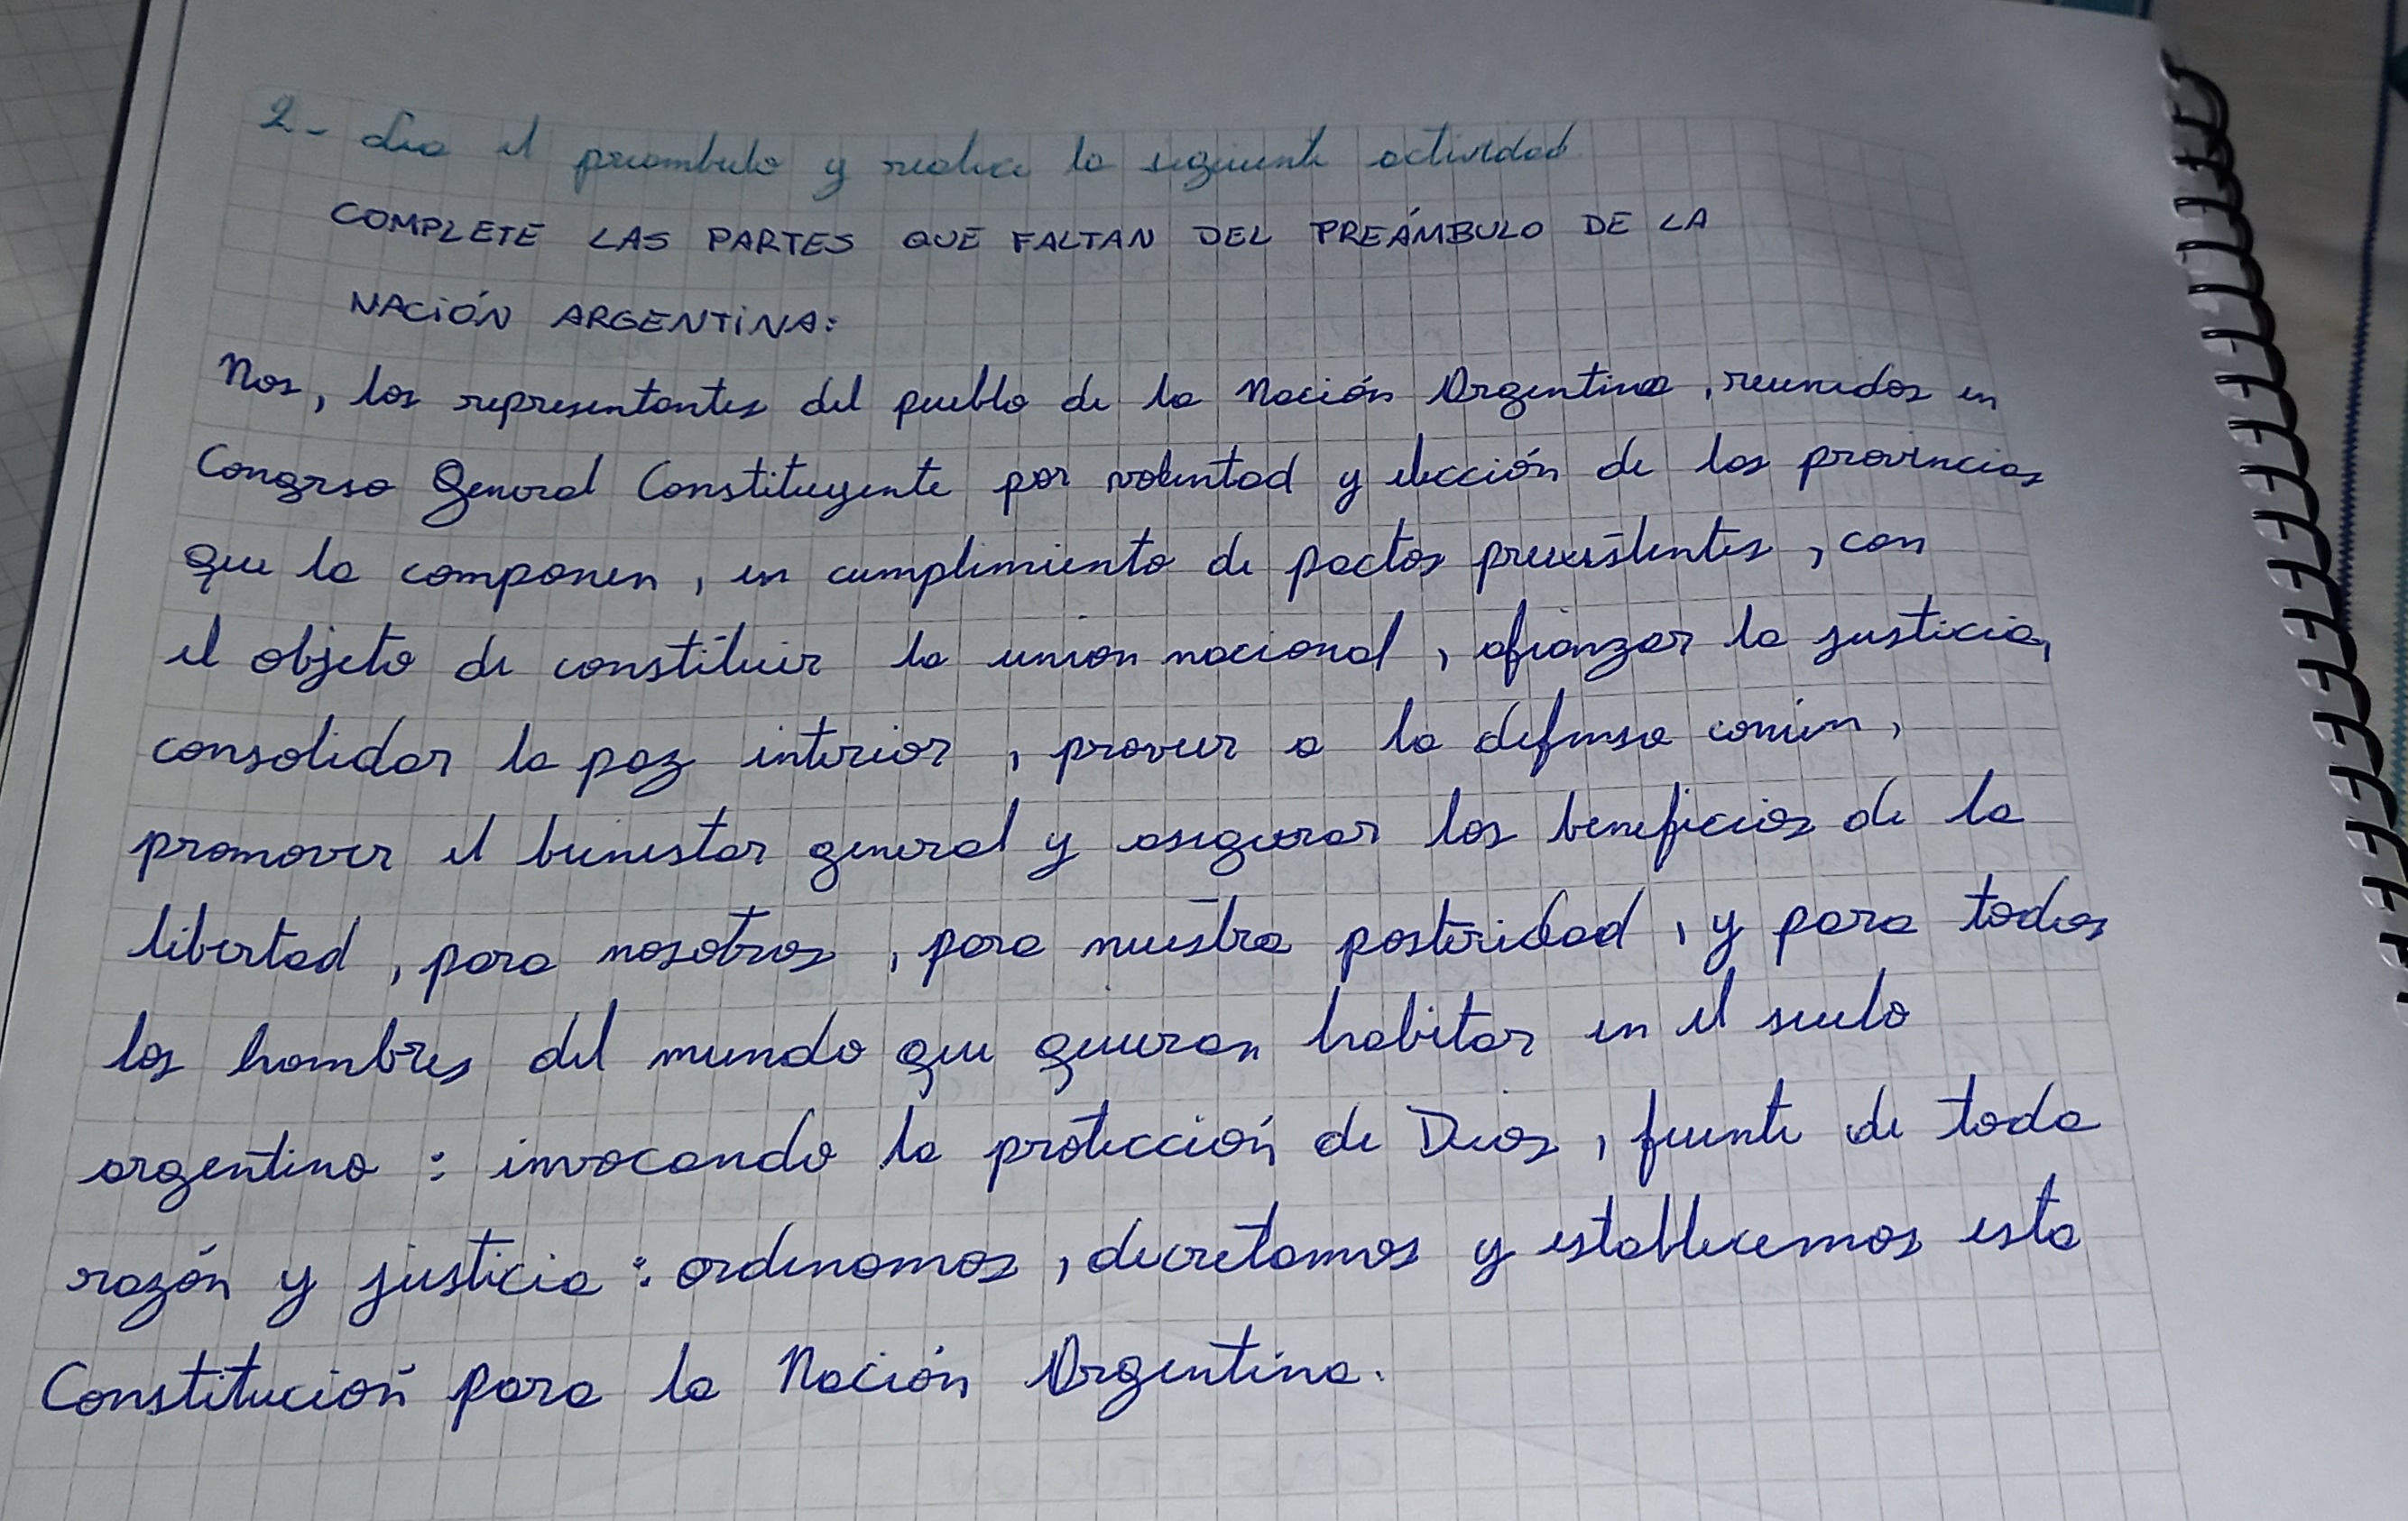 2- Lea el preambulo y realice la siguiente actividad
COMPLETE LAS PARTES QUE FALTAN DEL PREÁMBULO DE LA
NACIÓN ARGENTINA:
Nos, los representantes del pueblo de la Nación Argentina, reunidos en
Congreso General Constituyente por voluntad y elección de las provincias
que la componen, en cumplimiento de pactos preexistentes, con
el objeto de constituir la unión nacional, afianzar la justicia,
consolidar la paz interior, proveer a la defensa común,
promover el bienestar general y asegurar los beneficios de la
libertad, para nosotros, para nuestra posteridad, y para todos
los hombres del mundo que quieran habitar en el suelo
argentino: invocando la protección de Dios, fuente de toda
razón y justicia: ordenamos, decretamos y establecemos esta
Constitución para la Nación Argentina.